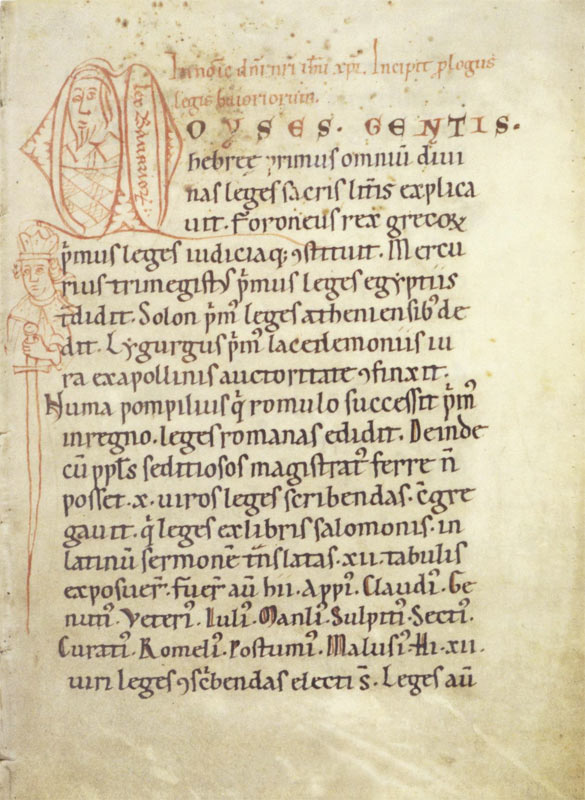 In noīe dn̄i nr̄i ih̄u xpī. Incipit ꝓlogus
legis baioriorum.
MOYSES. GENTIS.
hebreę primus omniū diui
nas leges sacris litt̄is explica
uit. Foroneus rex grecoꝝ
pͥmus leges iudiciaq; ꝯstituit. Mercu
rius trimegistꝰ pͥmus leges egyptiis
t̄didit. Solon pͥmꝰ leges atheniensibꝰ de
dit. Lygurgus pͥmꝰ lacedemoniis iu
ra ex apollinis auctoritate ꝯfinxit.
Numa pompilius qͥ romulo successit pͥmꝰ
in regno. leges romanas edidit. Deinde
cū pplꝰs seditiosos magistratꝰ ferre n̄
posset. x. uiros leges scribendas. c̄gre
gauit. qͥ leges ex libris salomonis. in
latinū sermonē t̄nslatas. xii. tabulis
exposuer̄. fuer̄ aū hii. Appiꝰ. Claudiꝰ. Ge
nutiꝰ. Veteriꝰ. Iuliꝰ. Manliꝰ. Sulpitiꝰ. Sectiꝰ.
Curatiꝰ. Romeliꝰ. Postumiꝰ. Malusiꝰ. Hi. xii.
uiri leges ꝯsc̄bendas electi s̄. Leges aū